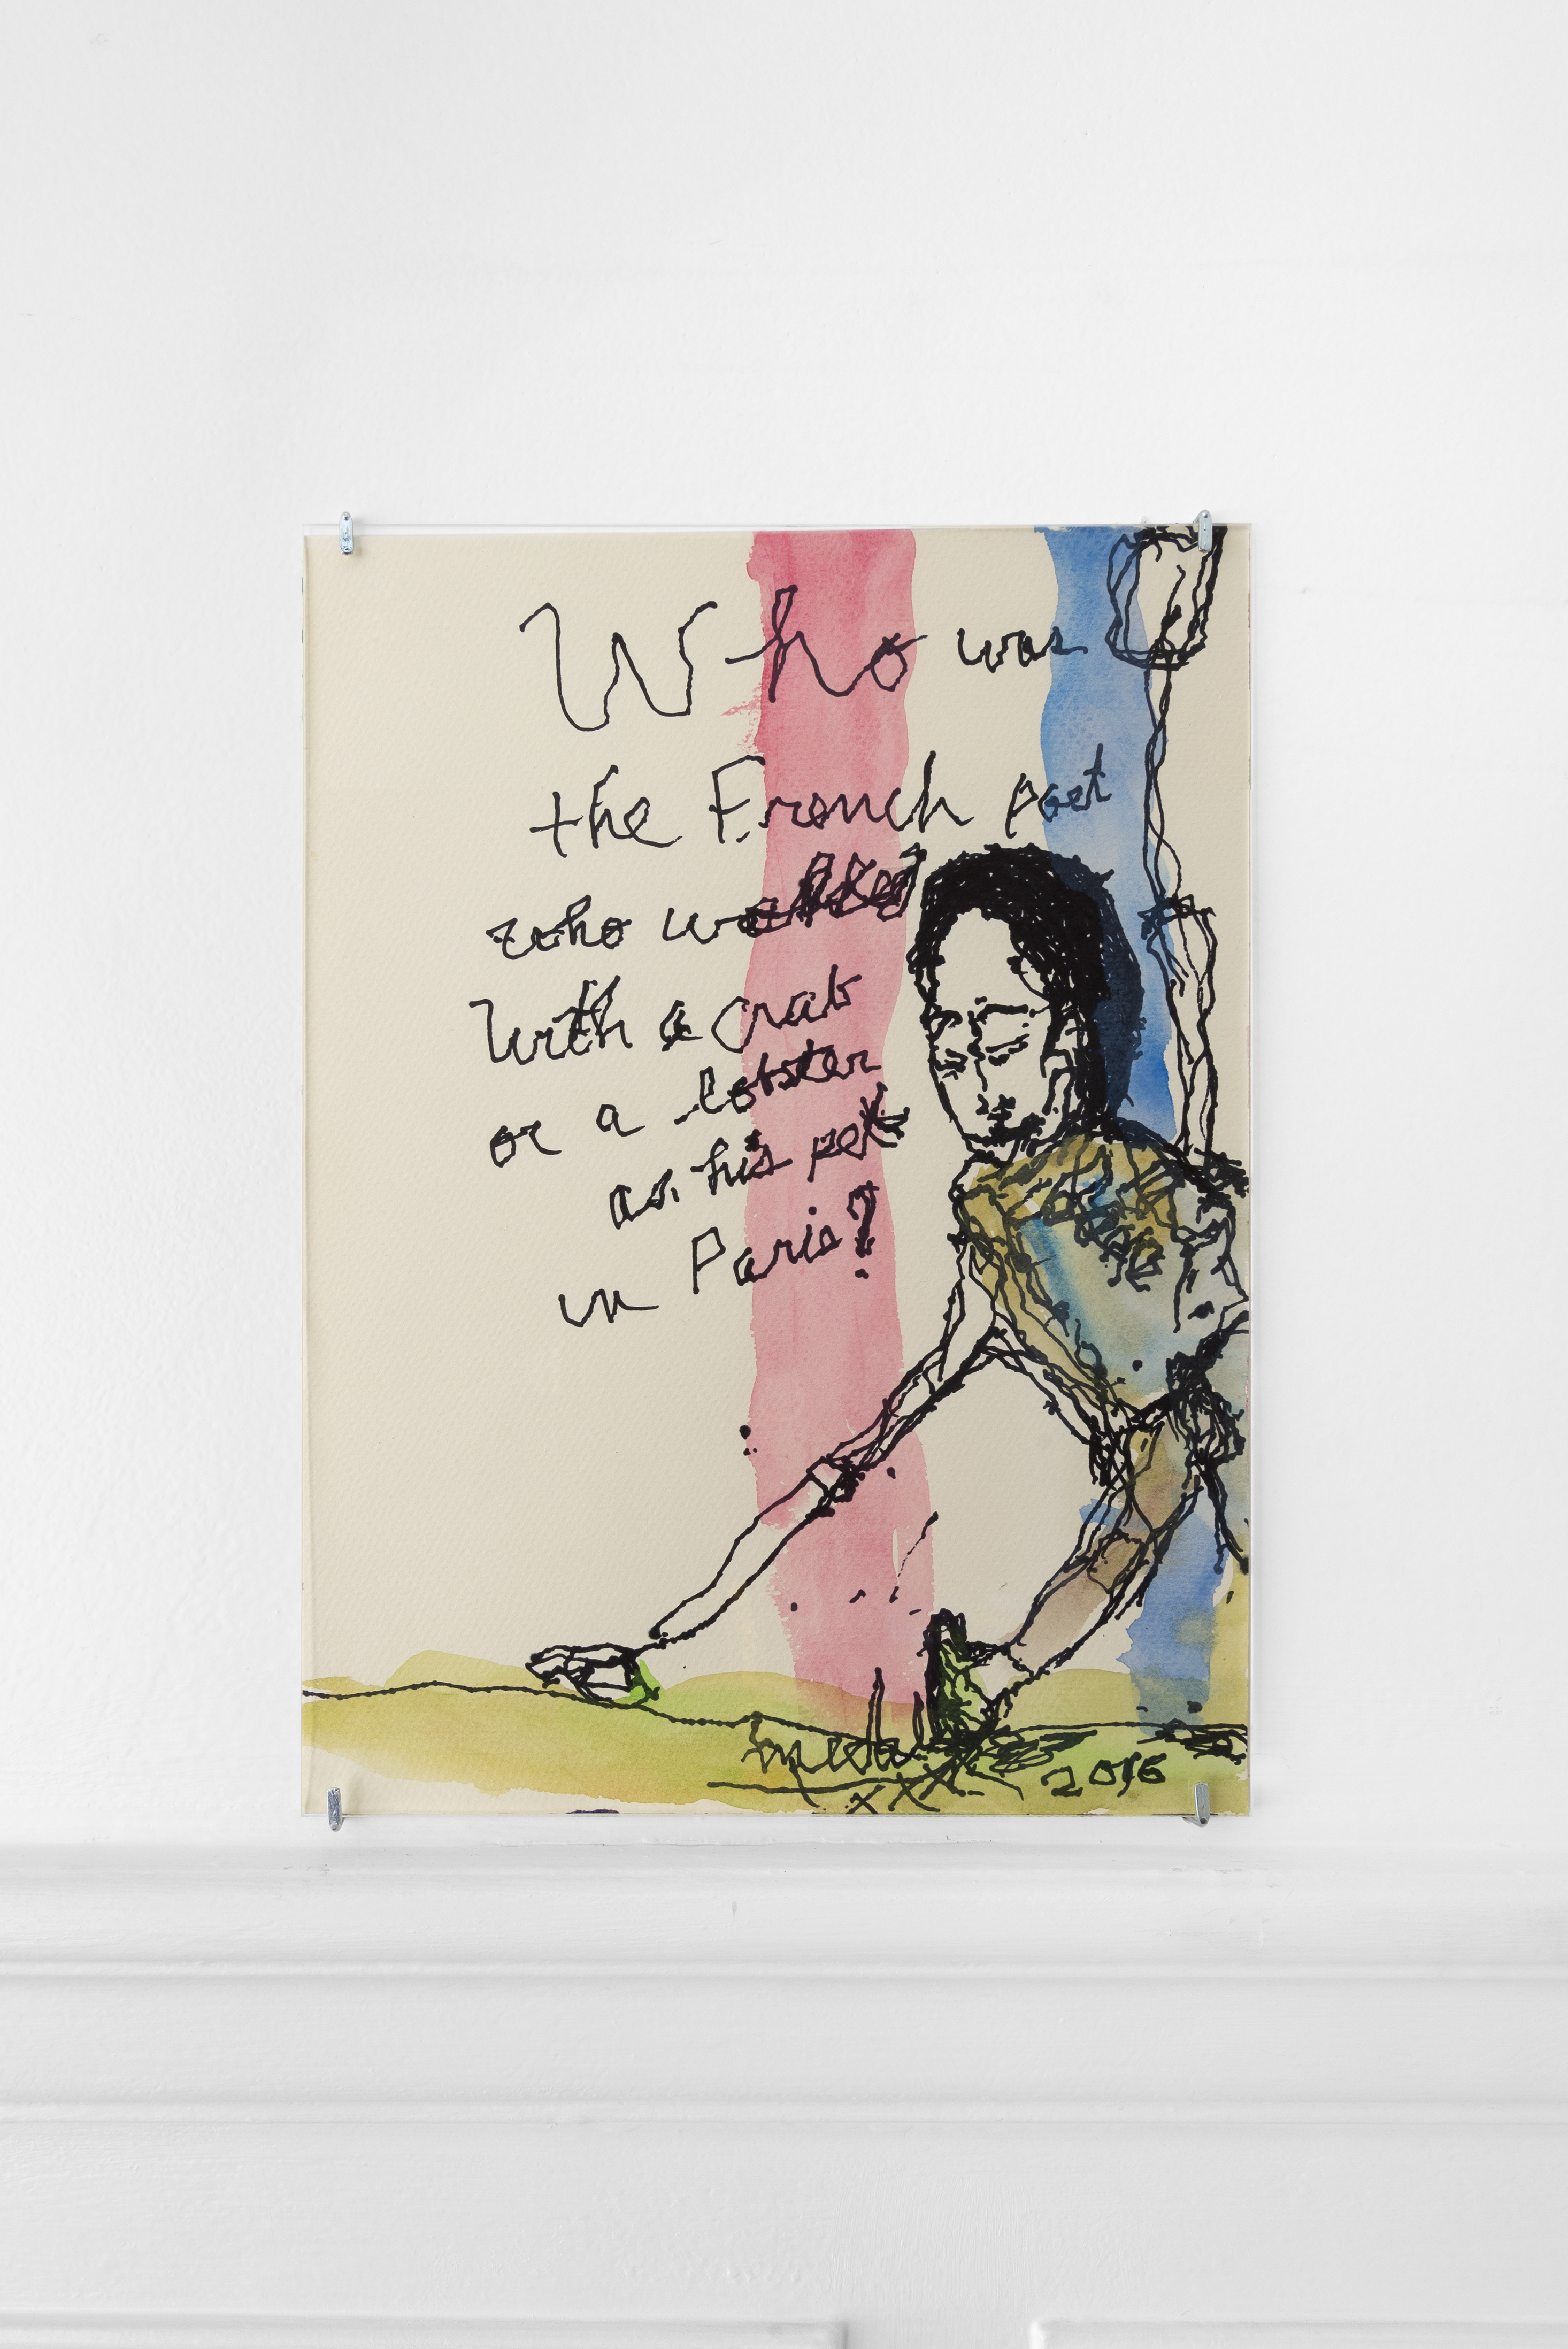 Who was
the French poet
who walked
with a crab
or a lobster
as his pet
in Paris?
2016